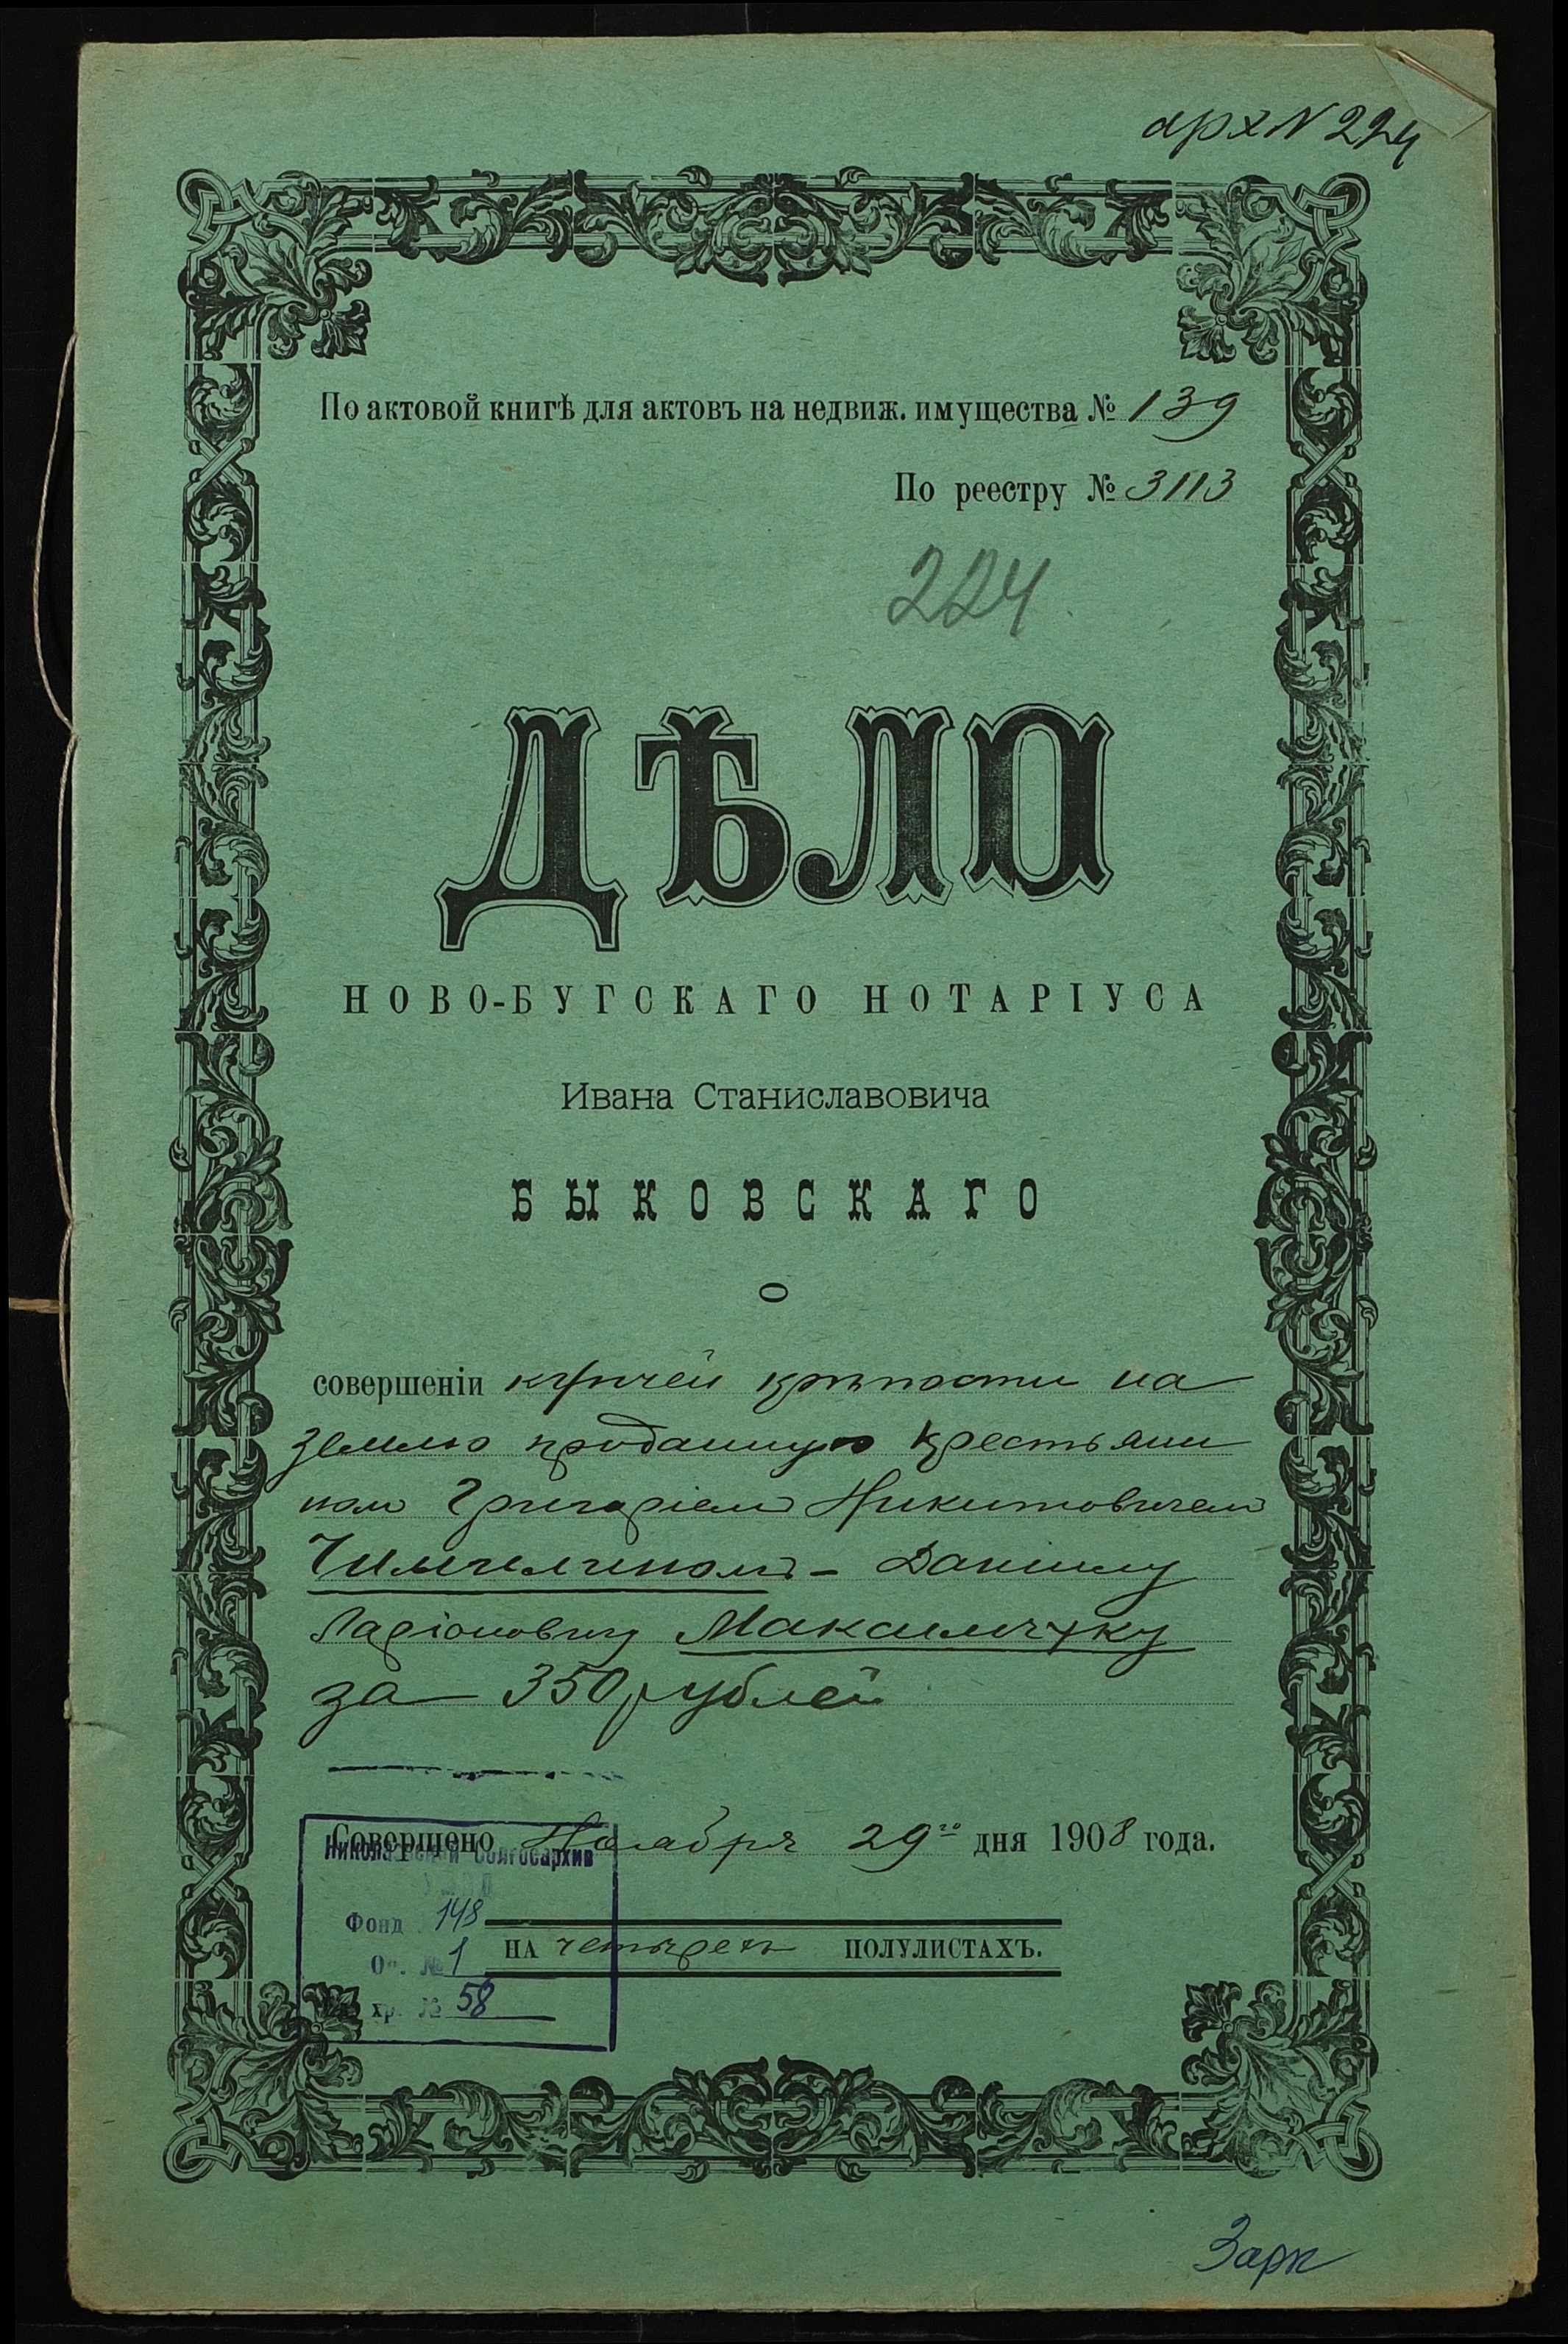 арх N 224
По актовой книгѣ для актовъ на недвиж. имущества № 139
По реестру № 3113
224
ДѢЛО
НОВО-БУГСКАГО НОТАРІУСА
Ивана Станиславовича
БЫКОВСКАГО
О
совершеніи купчей крѣпости на
землю проданную крестьяни
номъ Григоріемъ Никитовичемъ
Даніилу
Ларіоновичу Максимчуку
за 350 рублей
Совершено Ноября 29го дня 1908 года.
Николаевский облгосархив
Фонд 148
Оп. № 1
хр. № 58
НА четырехъ ПОЛУЛИСТАХЪ.